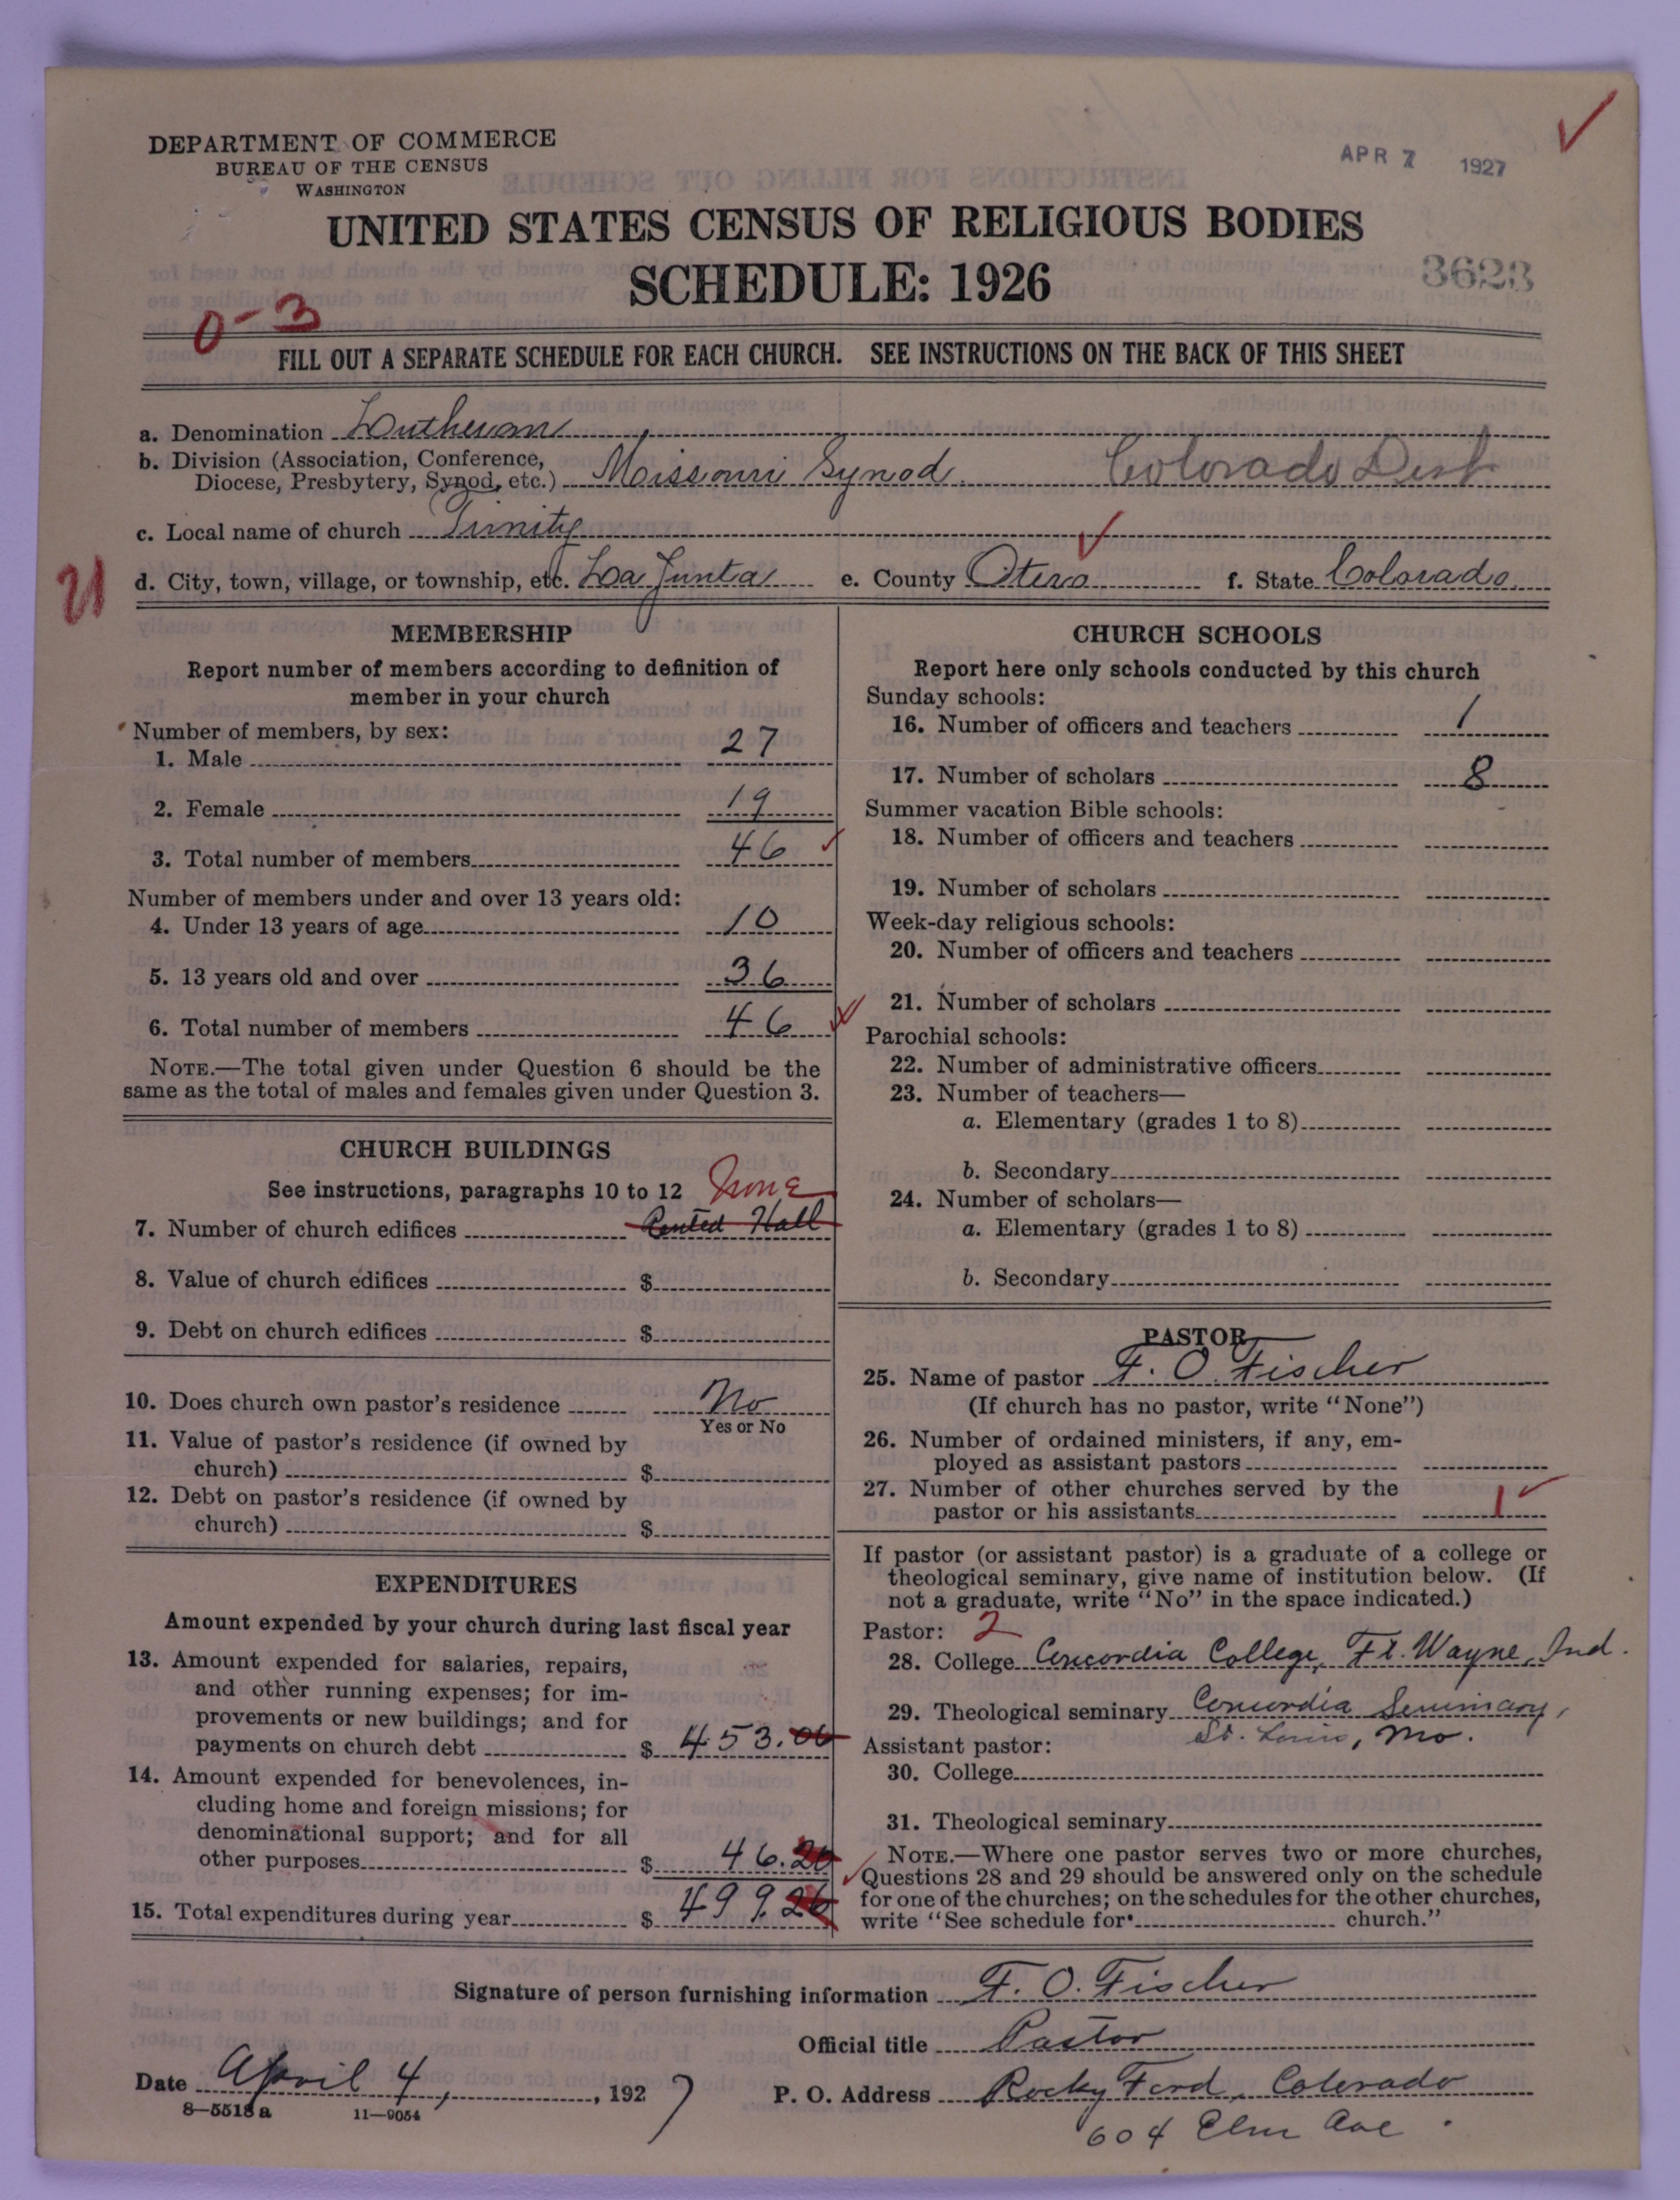 DEPARTMENT OF COMMERCE
BUREAU OF THE CENSUS
WASHINGTON
APR 7 1927
UNITED STATES CENSUS OF RELIGIOUS BODIES
SCHEDULE: 1926
3623
0-3
FILL OUT A SEPARATE SCHEDULE FOR EACH CHURCH. SEE INSTRUCTIONS ON THE BACK OF THIS SHEET
a. Denomination Lutheran
b. Division (Association, Conference,
Diocese, Presbytery, Synod, etc.) Missouri Synod. Colorado Dist
c. Local name of church Trinity
d. City, town, village, or township, etc. La Junta e. County Otero f. State Colorado
21
MEMBERSHIP
Report number of members according to definition of
member in your church
Number of members, by sex:
1. Male 27
2. Female 19
3. Total number of members 46
Number of members under and over 13 years old:
4. Under 13 years of age 10
5. 13 years old and over 36
6. Total number of members 46
NOTE.—The total given under Question 6 should be the
same as the total of males and females given under Question 3.
CHURCH BUILDINGS
See instructions, paragraphs 10 to 12 None
7. Number of church edifices Rented Hall
8. Value of church edifices $
9. Debt on church edifices $
10. Does church own pastor's residence No
Yes or No
11. Value of pastor's residence (if owned by
church) $
12. Debt on pastor's residence (if owned by
church) $
EXPENDITURES
Amount expended by your church during last fiscal year
13. Amount expended for salaries, repairs,
and other running expenses; for im-
provements or new buildings; and for
payments on church debt $ 453.00
14. Amount expended for benevolences, in-
cluding home and foreign missions; for
denominational support; and for all
other purposes $ 46.20
15. Total expenditures during year $ 499.20
CHURCH SCHOOLS
Report here only schools conducted by this church
Sunday schools:
16. Number of officers and teachers 1
17. Number of scholars 8
Summer vacation Bible schools:
18. Number of officers and teachers
19. Number of scholars
Week-day religious schools:
20. Number of officers and teachers
21. Number of scholars
Parochial schools:
22. Number of administrative officers
23. Number of teachers—
a. Elementary (grades 1 to 8)
b. Secondary
24. Number of scholars—
a. Elementary (grades 1 to 8)
b. Secondary
PASTOR
25. Name of pastor F. O. Fischer
(If church has no pastor, write "None")
26. Number of ordained ministers, if any, em-
ployed as assistant pastors
27. Number of other churches served by the
pastor or his assistants 1
If pastor (or assistant pastor) is a graduate of a college or
theological seminary, give name of institution below. (If
not a graduate, write "No" in the space indicated.)
Pastor: 2
28. College Concordia College, Ft. Wayne, Ind.
29. Theological seminary Concordia Seminary,
St. Louis, Mo.
Assistant pastor:
30. College
31. Theological seminary
NOTE.—Where one pastor serves two or more churches,
Questions 28 and 29 should be answered only on the schedule
for one of the churches; on the schedules for the other churches,
write "See schedule for church."
Signature of person furnishing information F. O. Fischer
Official title Pastor
Date April 4, 1927
P. O. Address Rocky Ford, Colorado
604 Elm Ave.
8—5518 a 11—9054